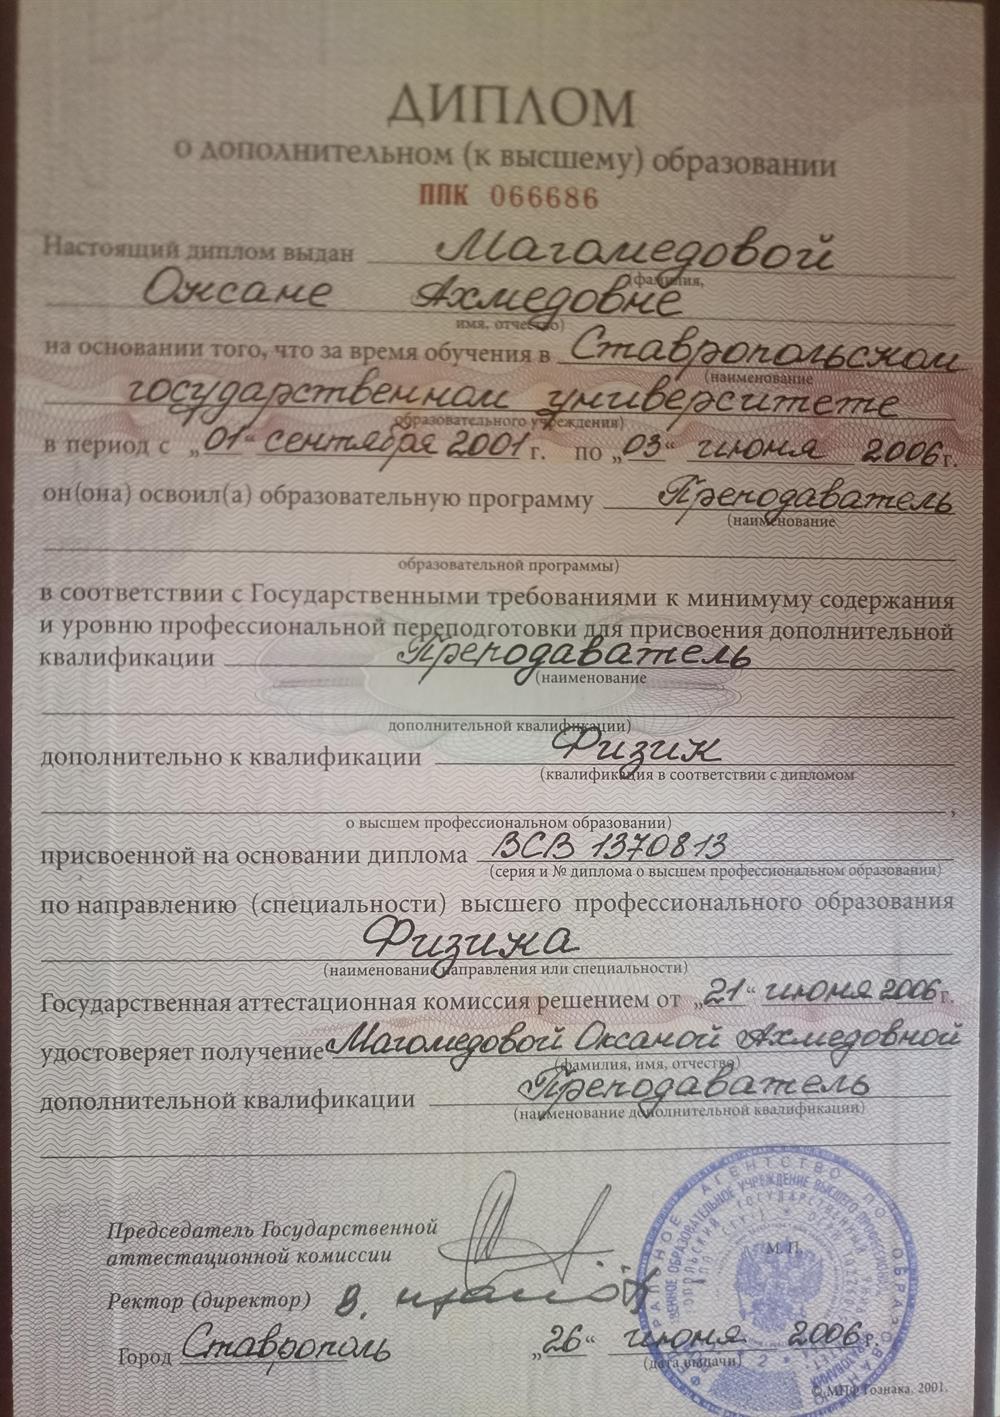 ДИПЛОМ
о дополнительном (к высшему) образовании
ППК 066686
Настоящий диплом выдан Магомедовой
(фамилия,
Оксане Ахмедовне
имя, отчество)
на основании того, что за время обучения в Ставропольском
(наименование
государственном университете
образовательного учреждения)
в период с „01“ сентября 2001 г. по „03“ июня 2006 г.
он(она) освоил(а) образовательную программу Преподаватель
(наименование
образовательной программы)
в соответствии с Государственными требованиями к минимуму содержания
и уровню профессиональной переподготовки для присвоения дополнительной
квалификации Преподаватель
(наименование
дополнительной квалификации)
дополнительно к квалификации Физик
(квалификация в соответствии с дипломом
,
о высшем профессиональном образовании)
присвоенной на основании диплома ВСВ 1370813
(серия и № диплома о высшем профессиональном образовании)
по направлению (специальности) высшего профессионального образования
Физика
(наименование направления или специальности)
Государственная аттестационная комиссия решением от „21“ июня 2006 г.
удостоверяет получение Магомедовой Оксаной Ахмедовной
(фамилия, имя, отчество)
дополнительной квалификации Преподаватель
(наименование дополнительной квалификации)
Председатель Государственной
аттестационной комиссии
М. П.
Ректор (директор)
Город Ставрополь „26“ июня 2006 г.
(дата выдачи)
© МПФ Гознака. 2001.